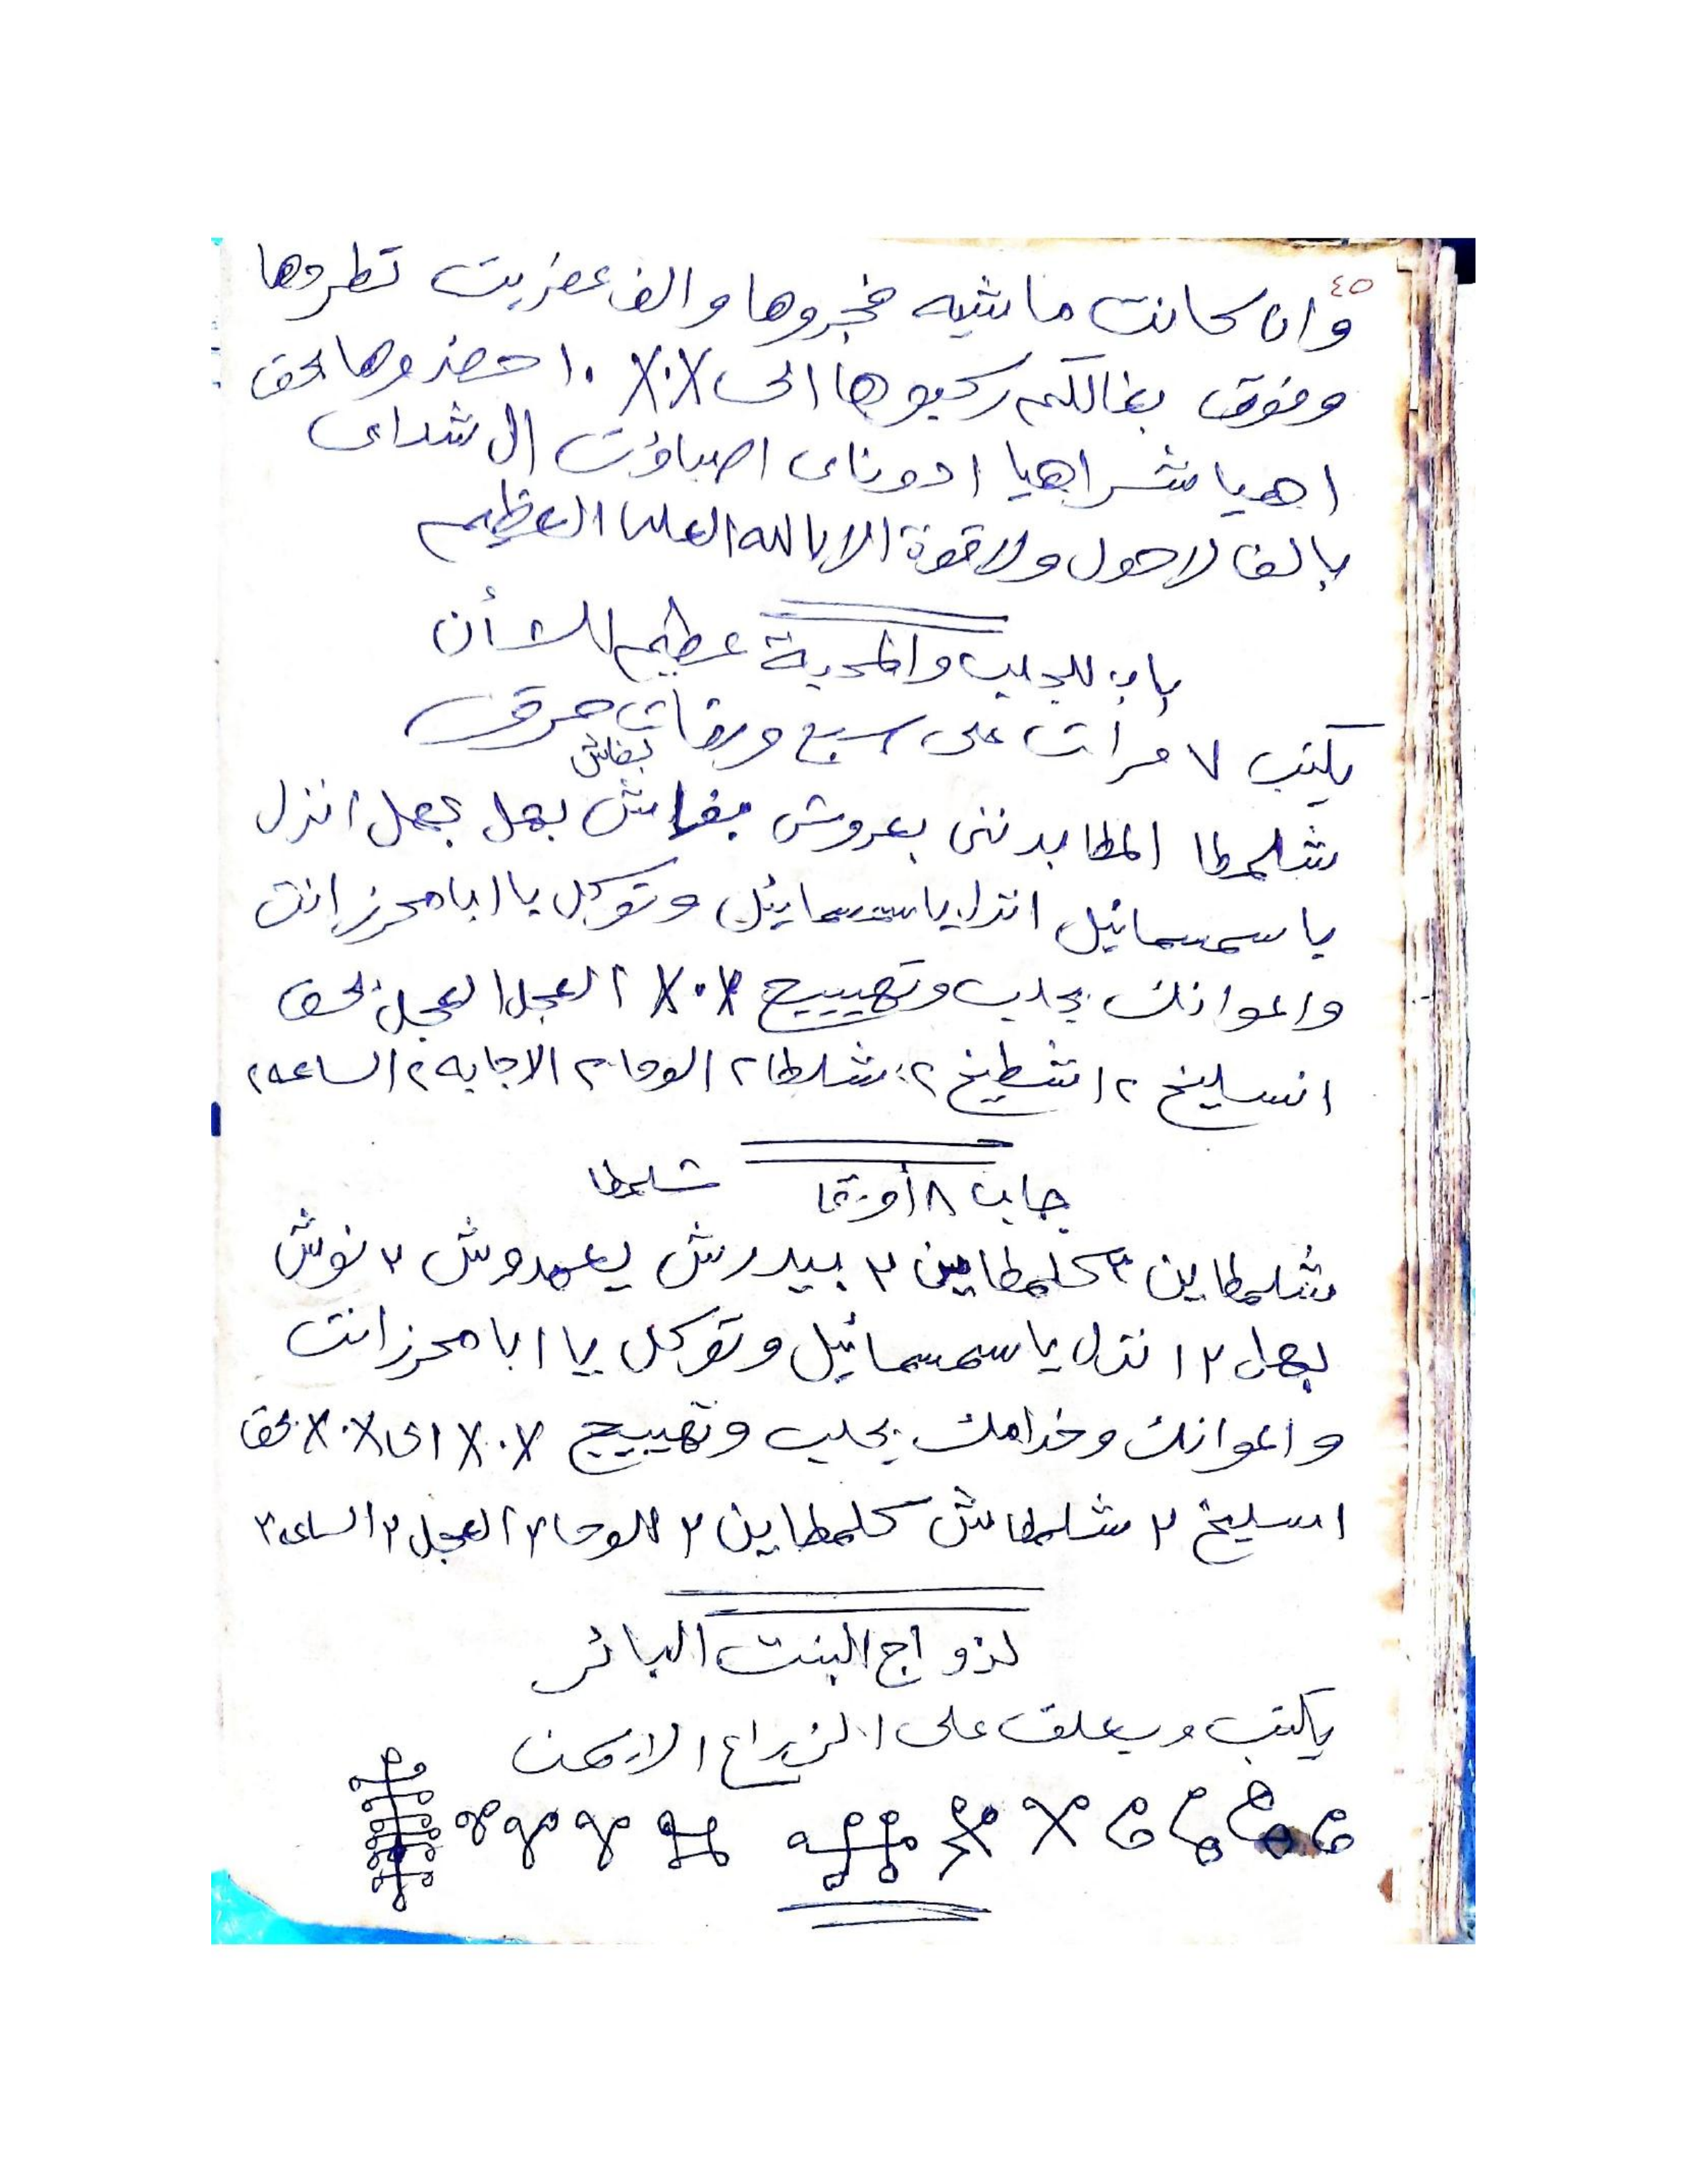 ٤٥
وان كانت ماشيه فجروها والف عفريت تطردها
وفوق بغالكم ركبوها الى X.X ١٠ حضروها بحق
اهيا شراهيا ادوناى اصباؤت ال شداى
بالف لاحول ولاقوة الا بالله العلى العظيم
باب للجلب والمحبة عظيم الشأن
يكتب ٧ مرات على سبع ورقات حرق
بغاش
شلمطا المطا بدننى بعروش بغاش بهل بهل انزل
يا سمسمائيل انزل يا سمسمائيل وتوكل يا ابا محرز انت
واعوانك بجلب وتهييج X.X ٢ العجل العجل بحق
انسليخ ٢ اشطيخ ٢ شلطا ٢ الوحا ٢ الاجابه ٢ الساعه ٢
جلب ٨ أورقا شلمطا
شلمطاين ٢ كلمطاين ٢ بيدرش يعمدوش ٢ نوش
بهل ٢ انزل يا سمسمائيل وتوكل يا ابا محرز انت
واعوانك وخدامك بجلب وتهييج X.X الى X.X بحق
اسليخ ٢ شلمطاش كلمطاين ٢ الوحا ٢ العجل ٢ الساعه ٢
لزواج البنت البائر
يكتب ويعلق على الزراع الايمن